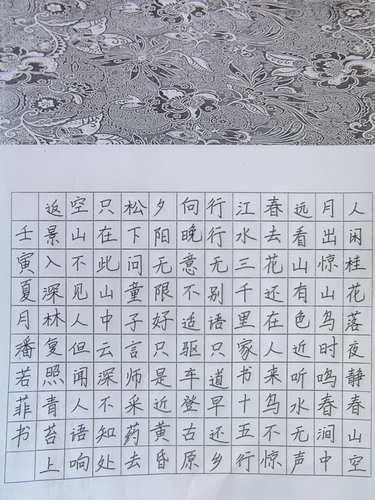 人闲桂花落夜静春山空
月出惊山鸟时鸣春涧中
远看山有色近听水无声
春去花还在人来鸟不惊
江水三千里家书十五行
行行无别语只道早还乡
向晚意不适驱车登古原
夕阳无限好只是近黄昏
松下问童子言师采药去
只在此山中云深不知处
空山不见人但闻人语响
返景入深林复照青苔上
壬寅夏月潘若菲书